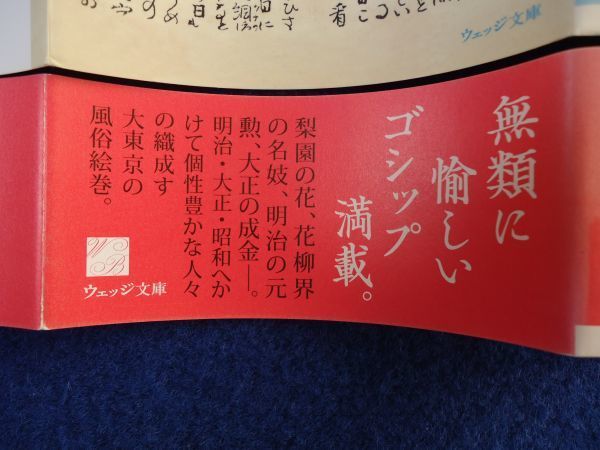 ウェッジ文庫
無類に
愉しい
ゴシップ
満載。
梨園の花、花柳界
の名妓、明治の元
勲、大正の成金―。
明治・大正・昭和へか
けて個性豊かな人々
の織成す
大東京の
風俗絵巻。
WB
ウェッジ文庫